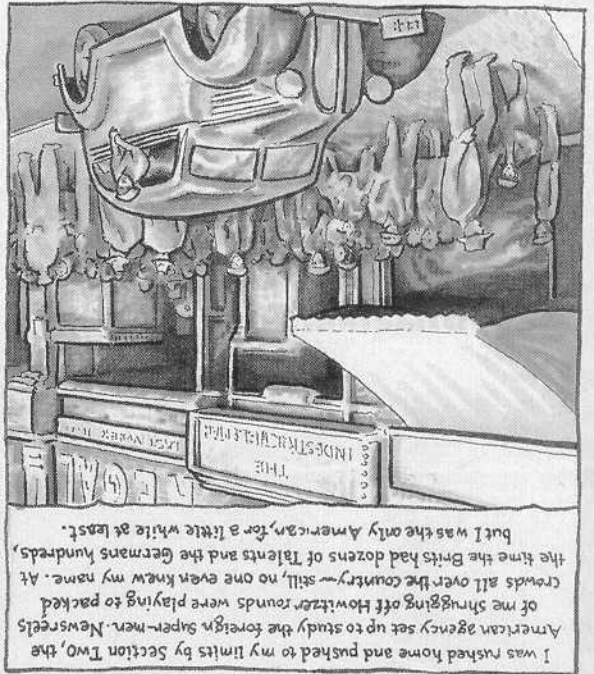 I was rushed home and pushed to my limits by Section Two, the
American agency set up to study the foreign Super-men. Newsreels
of me shrugging off Howitzer rounds were playing to packed
crowds all over the country — still, no one even knew my name. At
the time the Brits had dozens of Talents and the Germans hundreds,
but I was the only American, for a little while at least.
REGAL
THE
INDESTRUCTIBLE MAN
LAST WEEK